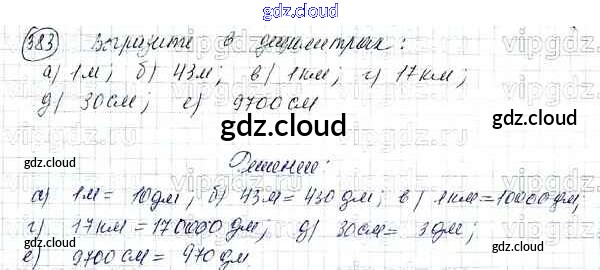 gdz.cloud
383 Выразите в дециметрах:
а) 1м; б) 43м; в) 1км; г) 17км;
д) 30см; е) 9700см
gdz.cloud
gdz.cloud
gdz.cloud
Решение:
gdz.cloud
а) 1м = 10дм; б) 43м = 430дм; в) 1км = 10000дм;
г) 17км = 170000дм; д) 30см = 3дм;
е) 9700см = 970дм
gdz.cloud
gdz.cloud